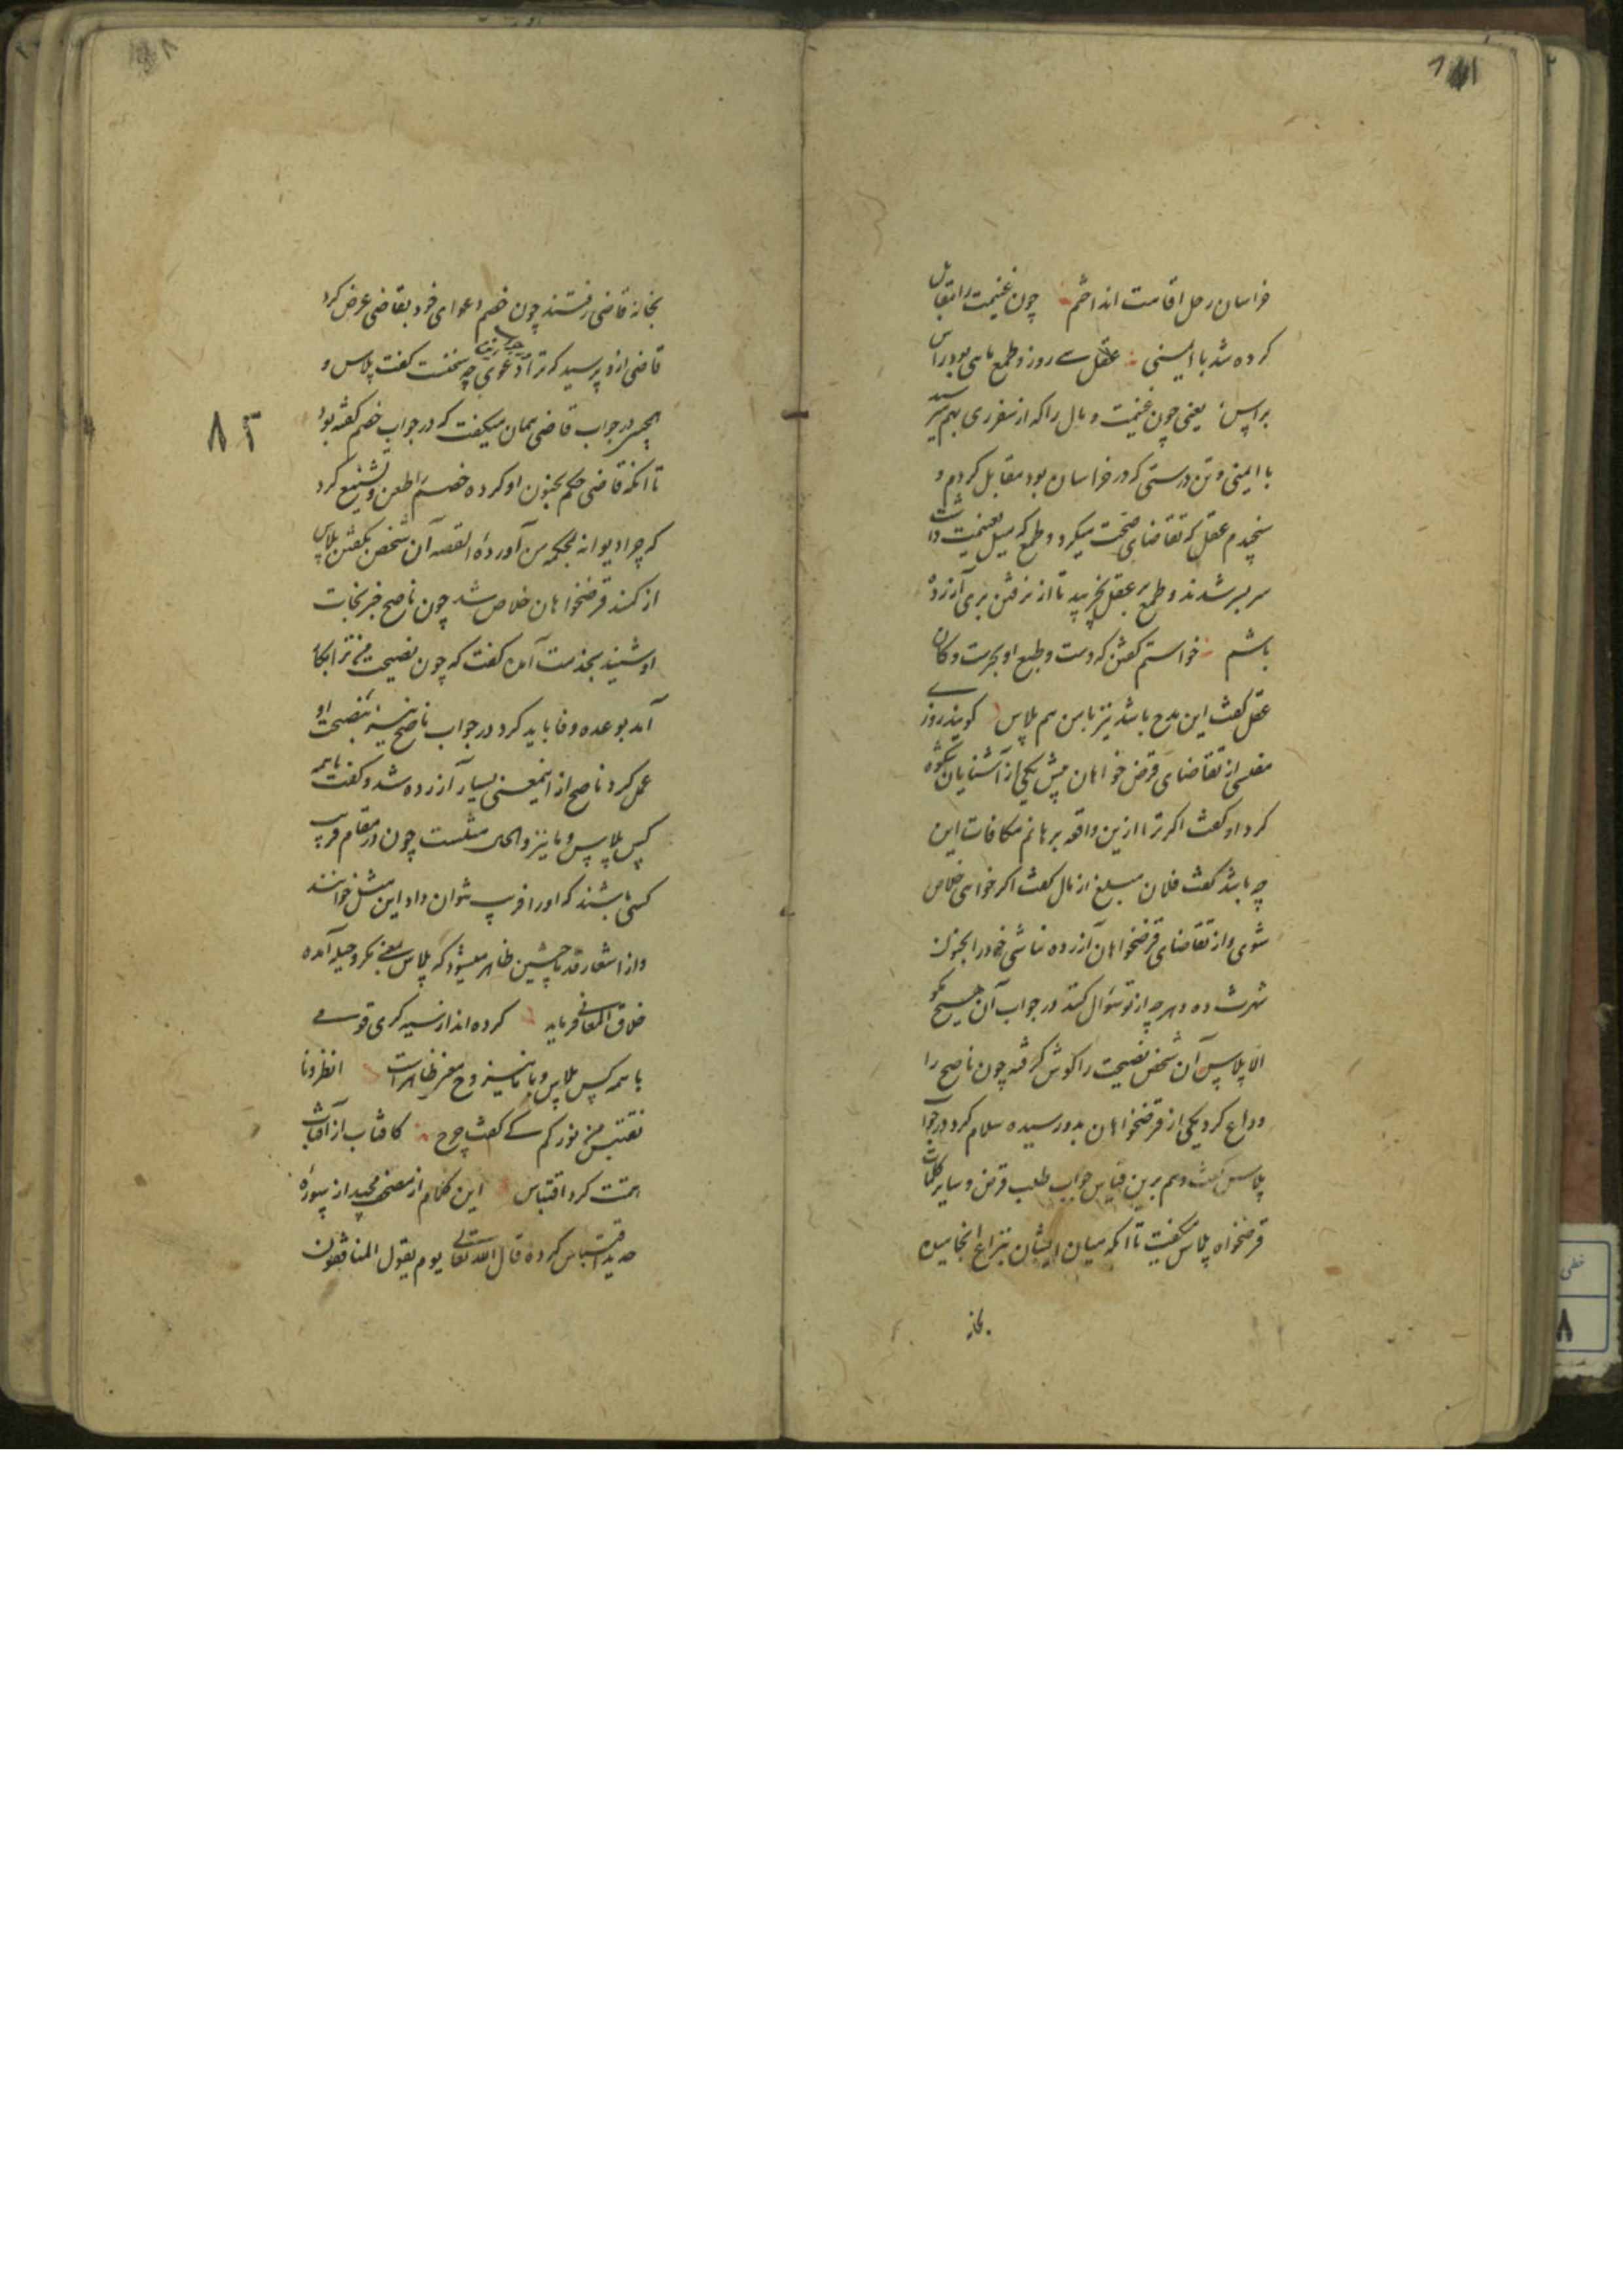 خراسان رحل اقامت انداختم چون غنیمت را تقابل
کرده شد با ایمنی عقل سی روز و طمع ماهی بود راس
براس یعنی چون غنیمت و مال را که از سفر ری بهم میرسد
با ایمنی و تن درستی که در خراسان بود مقابل کردم و
سنجیدم عقل که تقاضای صحت میکرد و طمع که میل بغنیمت داشت
سر بسر شدند و طمع بر عقل نچربید تا از نرفتن بری آزرده
باشم خواستم گفتن که دست و طبع او بحرست و کان
عقل گفت این مدح باشد نیز با من هم پلاس گویند روزی
مفلسی از تقاضای قرض خواهان پیش یکی از آشنایان شکوه
کرد او گفت اگر ترا ازین واقعه برهانم مکافات این
چه باشد گفت فلان مبلغ از مال گفت اگر خواهی خلاص
شوی و از تقاضای قرضخواهان آزرده نباشی خود را بجنون
شهرت ده و هر چه از تو سؤال کنند در جواب آن هیچ مگو
الا پلاس آن شخص نصیحت را گوش گرفته چون ناصح را
وداع کرد یکی از قرضخواهان بدو رسیده سلام کرد در جواب
پلاس گفت و هم برین قیاس جواب طلب قرض و سایر کلمات
قرضخواه پلاس میگفت تا آنکه میان ایشان بنزاع انجامیده
بخانه
بخانه قاضی رفتند چون خصم دعوای خود بقاضی عرض کرد
قاضی ازو پرسید که ترا درین دعوی چه سخنست گفت پلاس و
در جواب قاضی همان میگفت که در جواب خصم گفته بود
تا آنکه قاضی حکم بجنون او کرده خصم را طعن و تشنیع کرد
که چرا دیوانه بمحکمه من آورده القصه آن شخص بگفتن پلاس
از کمند قرضخواهان خلاص شد چون ناصح خبر نجات
او شنید بخدمت آمده گفت که چون نصیحت من ترا بکار
آمد بوعده وفا باید کرد در جواب ناصح نیز بنصیحت او
عمل کرد ناصح از اینمعنی بسیار آزرده شد و گفت با همه
کس پلاس و با ما نیز و الحال مثلست چون در مقام فریب
کسی باشند که او را فریب نتوان داد این مثل خوانند
و از اشعار قدما چنین ظاهر میشود که پلاس بمعنی مکر و حیله آمده
خلاق المعانی فرماید کرده اند از سیه گری قومی
با همه کس پلاس و با ما نیز و ح مغز ظاهر است انظرونا
نقتبس من نورکم کی گفت چرخ کافتاب از آفتاب
همت کرد اقتباس این کلام از مصحف مجید از سوره
حدید اقتباس کرده قال الله تعالی یوم یقول المنافقون
۸۲